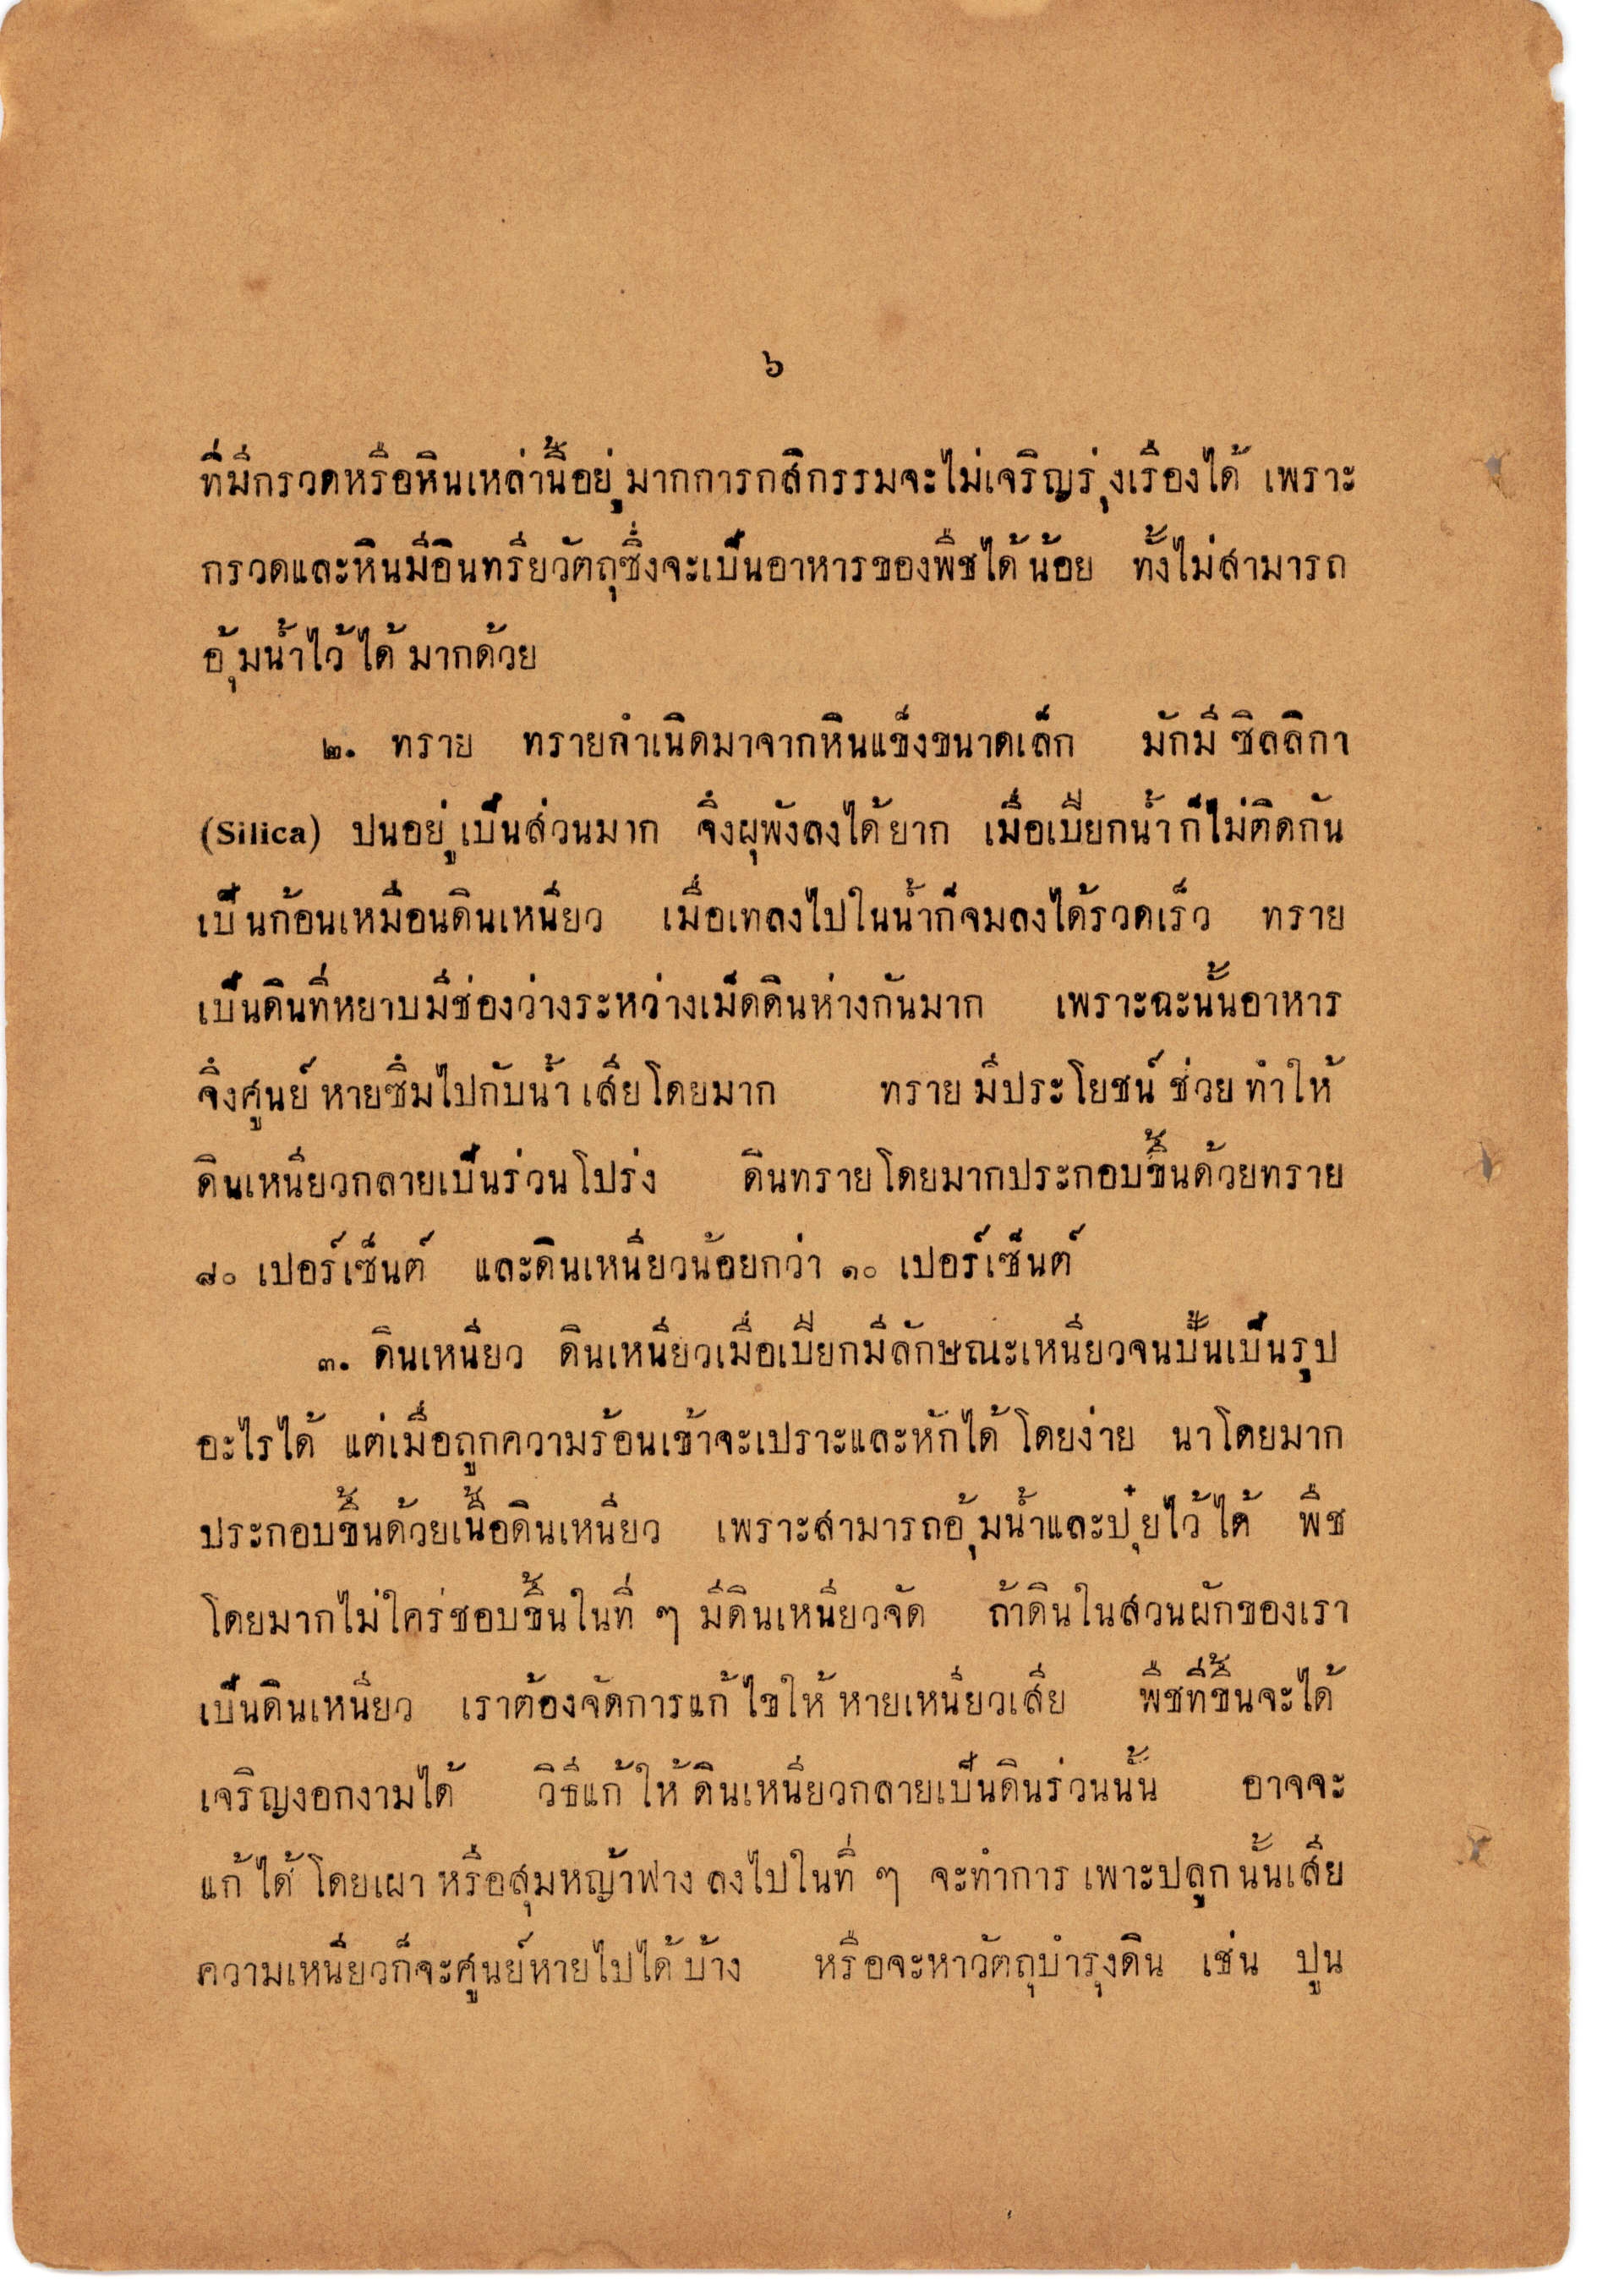 ๖
ที่มีกรวดหรือหินเหล่านี้อยู่มากการกสิกรรมจะไม่เจริญรุ่งเรืองได้ เพราะ
กรวดและหินมีอินทรียวัตถุซึ่งจะเป็นอาหารของพืชได้น้อย ทั้งไม่สามารถ
อุ้มน้ำไว้ได้มากด้วย
๒. ทราย ทรายกำเนิดมาจากหินแข็งขนาดเล็ก มักมีซิลลิกา
(Silica) ปนอยู่เป็นส่วนมาก จึงผุพังลงได้ยาก เมื่อเปียกน้ำก็ไม่ติดกัน
เป็นก้อนเหมือนดินเหนียว เมื่อเทลงไปในน้ำก็จมลงได้รวดเร็ว ทราย
เป็นดินที่หยาบมีช่องว่างระหว่างเม็ดดินห่างกันมาก เพราะฉะนั้นอาหาร
จึงศูนย์หายซึมไปกับน้ำเสียโดยมาก ทรายมีประโยชน์ช่วยทำให้
ดินเหนียวกลายเป็นร่วนโปร่ง ดินทรายโดยมากประกอบขึ้นด้วยทราย
๘๐ เปอร์เซ็นต์ และดินเหนียวน้อยกว่า ๑๐ เปอร์เซ็นต์
๓. ดินเหนียว ดินเหนียวเมื่อเปียกมีลักษณะเหนียวจนปั้นเป็นรูป
อะไรได้ แต่เมื่อถูกความร้อนเข้าจะเปราะและหักได้โดยง่าย นาโดยมาก
ประกอบขึ้นด้วยเนื้อดินเหนียว เพราะสามารถอุ้มน้ำและปุ๋ยไว้ได้ พืช
โดยมากไม่ใคร่ชอบขึ้นในที่ ๆ มีดินเหนียวจัด ถ้าดินในสวนผักของเรา
เป็นดินเหนียว เราต้องจัดการแก้ไขให้หายเหนียวเสีย พืชที่ขึ้นจะได้
เจริญงอกงามได้ วิธีแก้ให้ดินเหนียวกลายเป็นดินร่วนนั้น อาจจะ
แก้ได้โดยเผาหรือสุมหญ้าฟางลงไปในที่ ๆ จะทำการเพาะปลูกนั้นเสีย
ความเหนียวก็จะศูนย์หายไปได้บ้าง หรือจะหาวัตถุบำรุงดิน เช่น ปูน